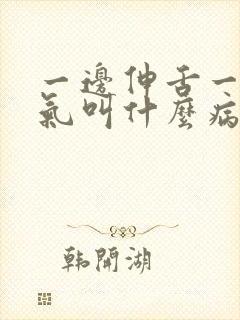 一邊伸舌一
氣叫什麼病
韩開湖